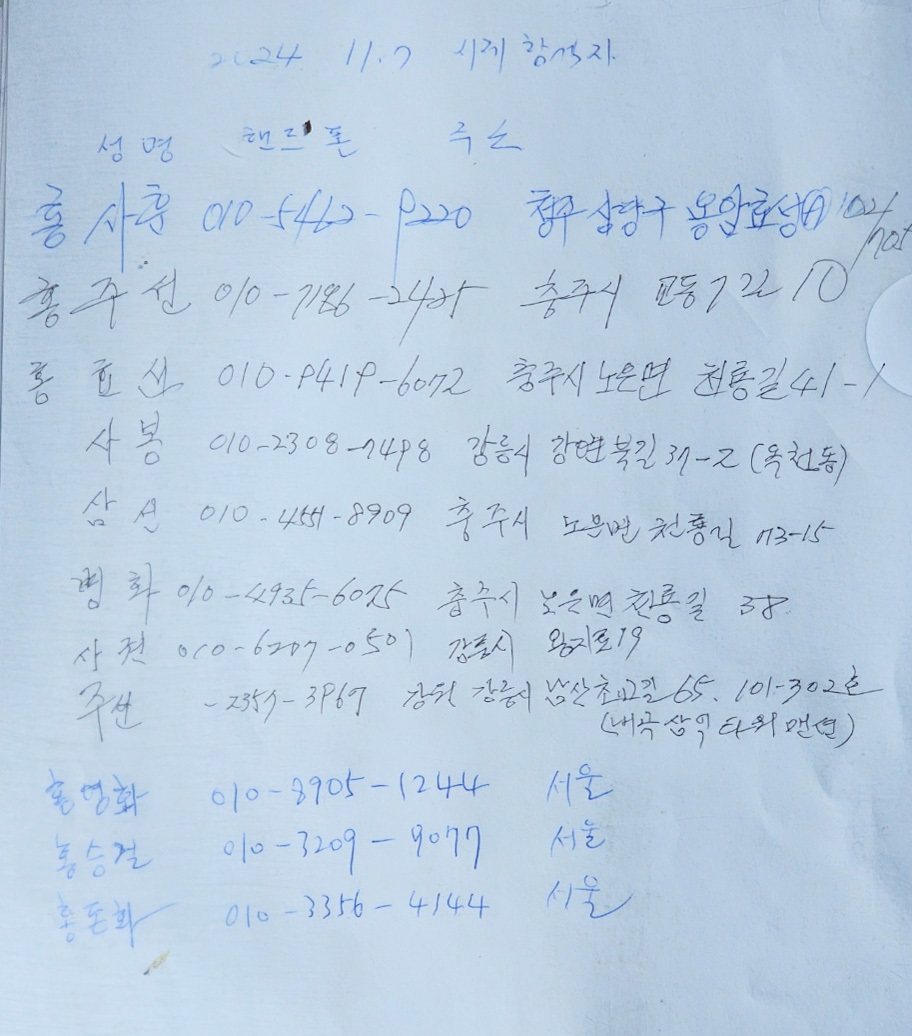 2024. 11.7 시제 참석자
성명 핸드폰 주소
홍사훈 010-5462-9220 청주 상당구 용암효성A 102/705
홍주선 010-7186-2425 충주시 교동7길 10
홍효선 010-9419-6072 충주시 노은면 천룡길 41-1
사봉 010-2308-7498 강릉시 강변북길 37-2 (옥천동)
삼선 010-4551-8909 충주시 노은면 천룡길 73-15
명화 010-4935-6025 충주시 노은면 천룡길 38
사천 010-6207-0501 강릉시 왕지로19
주선 -2357-3967 강원 강릉시 남산초교길 65. 101-302호
(내곡삼익타워맨션)
홍영화 010-8905-1244 서울
홍승걸 010-3209-9077 서울
홍돈화 010-3356-4144 서울